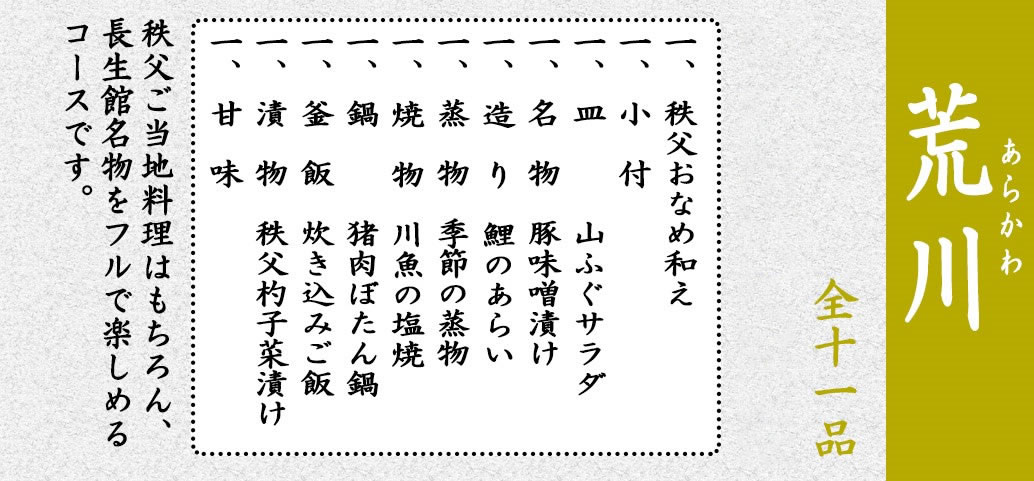 荒川
あらかわ
全十一品
一、秩父おなめ和え
一、小付
一、皿 山ふぐサラダ
一、名物 豚味噌漬け
一、造り 鯉のあらい
一、蒸物 季節の蒸物
一、焼物 川魚の塩焼
一、鍋 猪肉ぼたん鍋
一、釜飯 炊き込みご飯
一、漬物 秩父杓子菜漬け
一、甘味
秩父ご当地料理はもちろん、
長生館名物をフルで楽しめる
コースです。